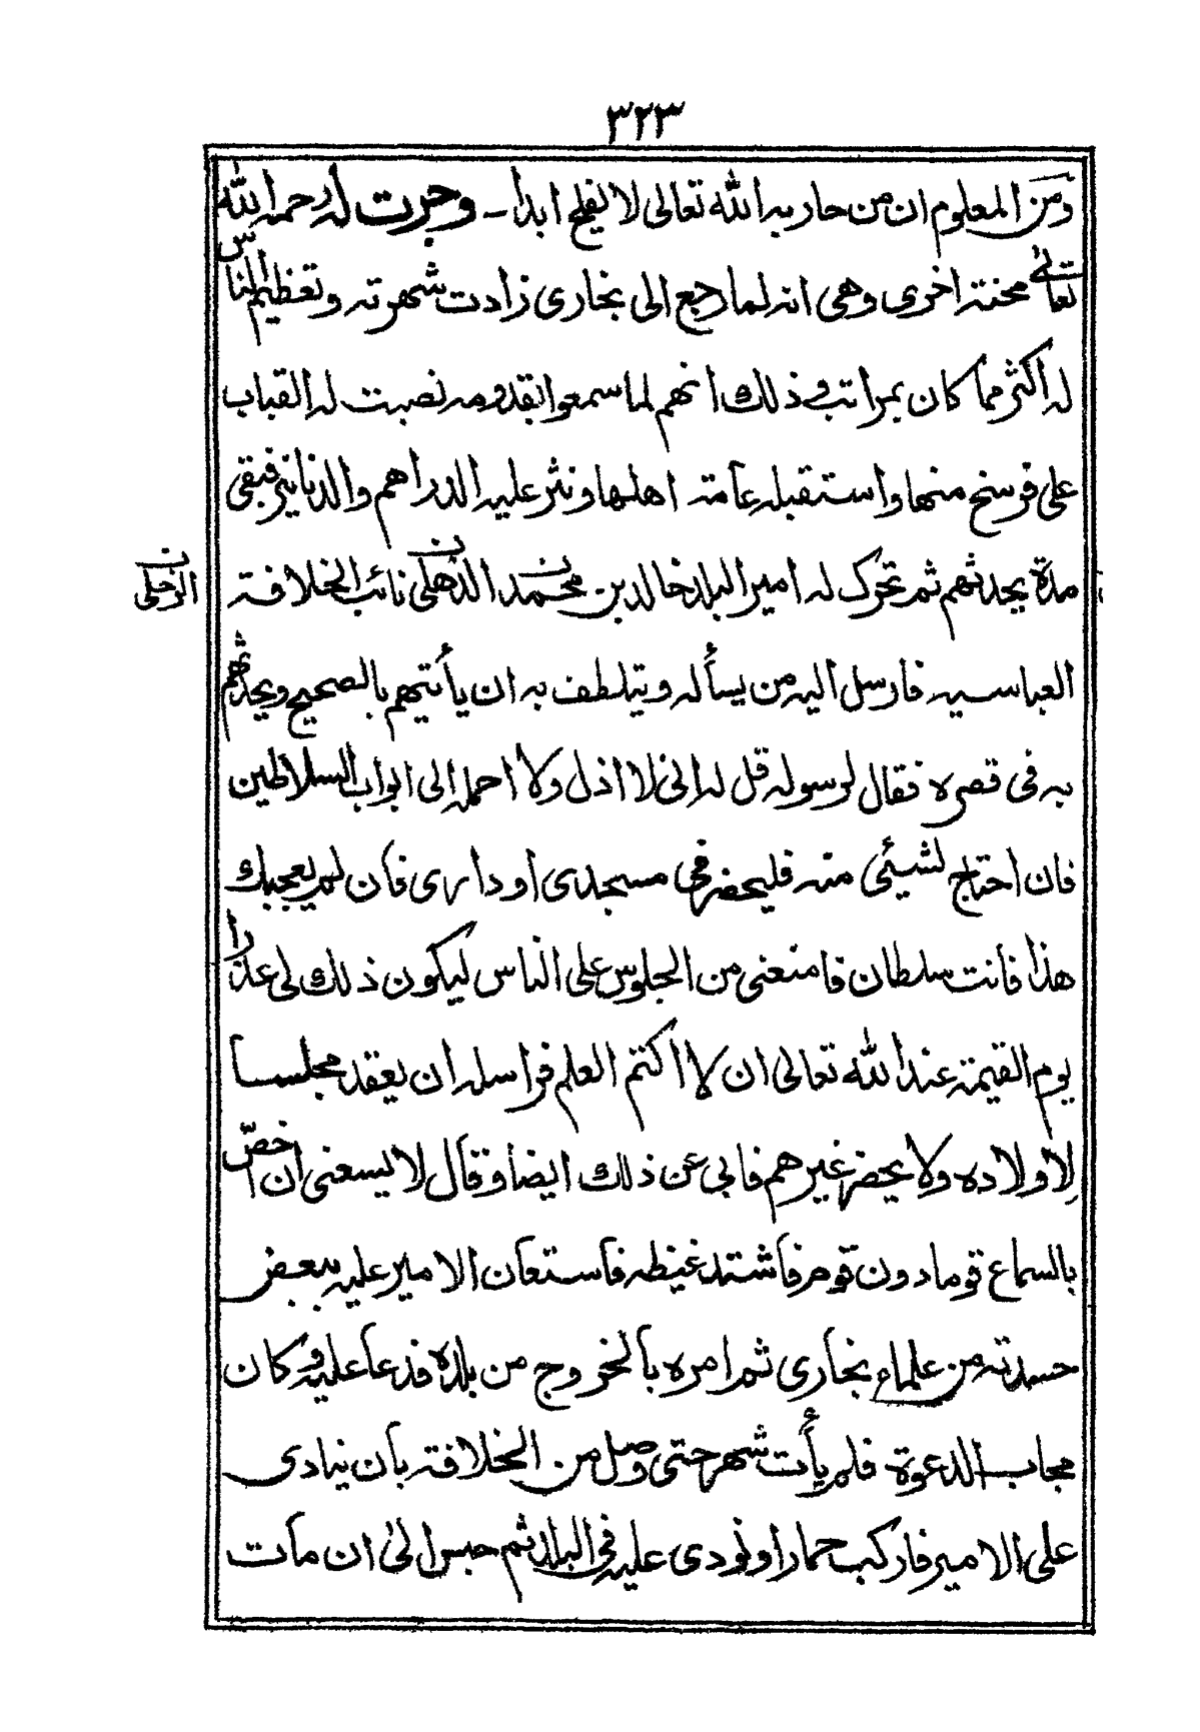 ٣٢٣
ومن المعلوم ان من حاربه الله تعالى لا يفلح ابدا ـ وجرت له رحمه الله
تعالى محنته اخرى وهى انه لما رجع الى بخارى زادت شهرته وتعظيم الناس
له اكثر مما كان بمراتب وذلك انهم لما سمعوا بقدومه نصبت له القباب
على فرسخ منها واستقبله عآمته اهلها ونثر عليه الدراهم والدنانير فبقى
مدة يحدثهم ثم تحرك له امير البلد خالد بن محمد الذهلى نائب الخلافته
العباسيه فارسل اليه من يسأله ويتلطف به ان يأتيهم بالصحيح ويحدثهم
به فى قصره فقال لرسوله قل له انى لا اذل ولا احمله الى ابواب السلاطين
فان احتاج لشيئى منه فليحضر فى مسجدى او دارى فان لم يعجبك
هذا فانت سلطان فامنعنى من الجلوس على الناس ليكون ذلك لى عذرا
يوم القيمة عند الله تعالى ان لا اكتم العلم فراسله ان يعقد مجلسا
لاولاده ولا يحضر غيرهم فابى عن ذلك ايضا وقال لا يسعنى ان اخص
بالسماع قوما دون قوم فاشتد غيظه فاستعان الامير عليه ببعض
حسدته من علماء بخارى ثم امره بالخروج من بلده فدعا عليه وكان
مجاب الدعوة فلم يأت شهر حتى وصل من الخلافته بان ينادى
على الامير فاركب حمارا ونودى عليه فى البلد ثم حبس الى ان مات